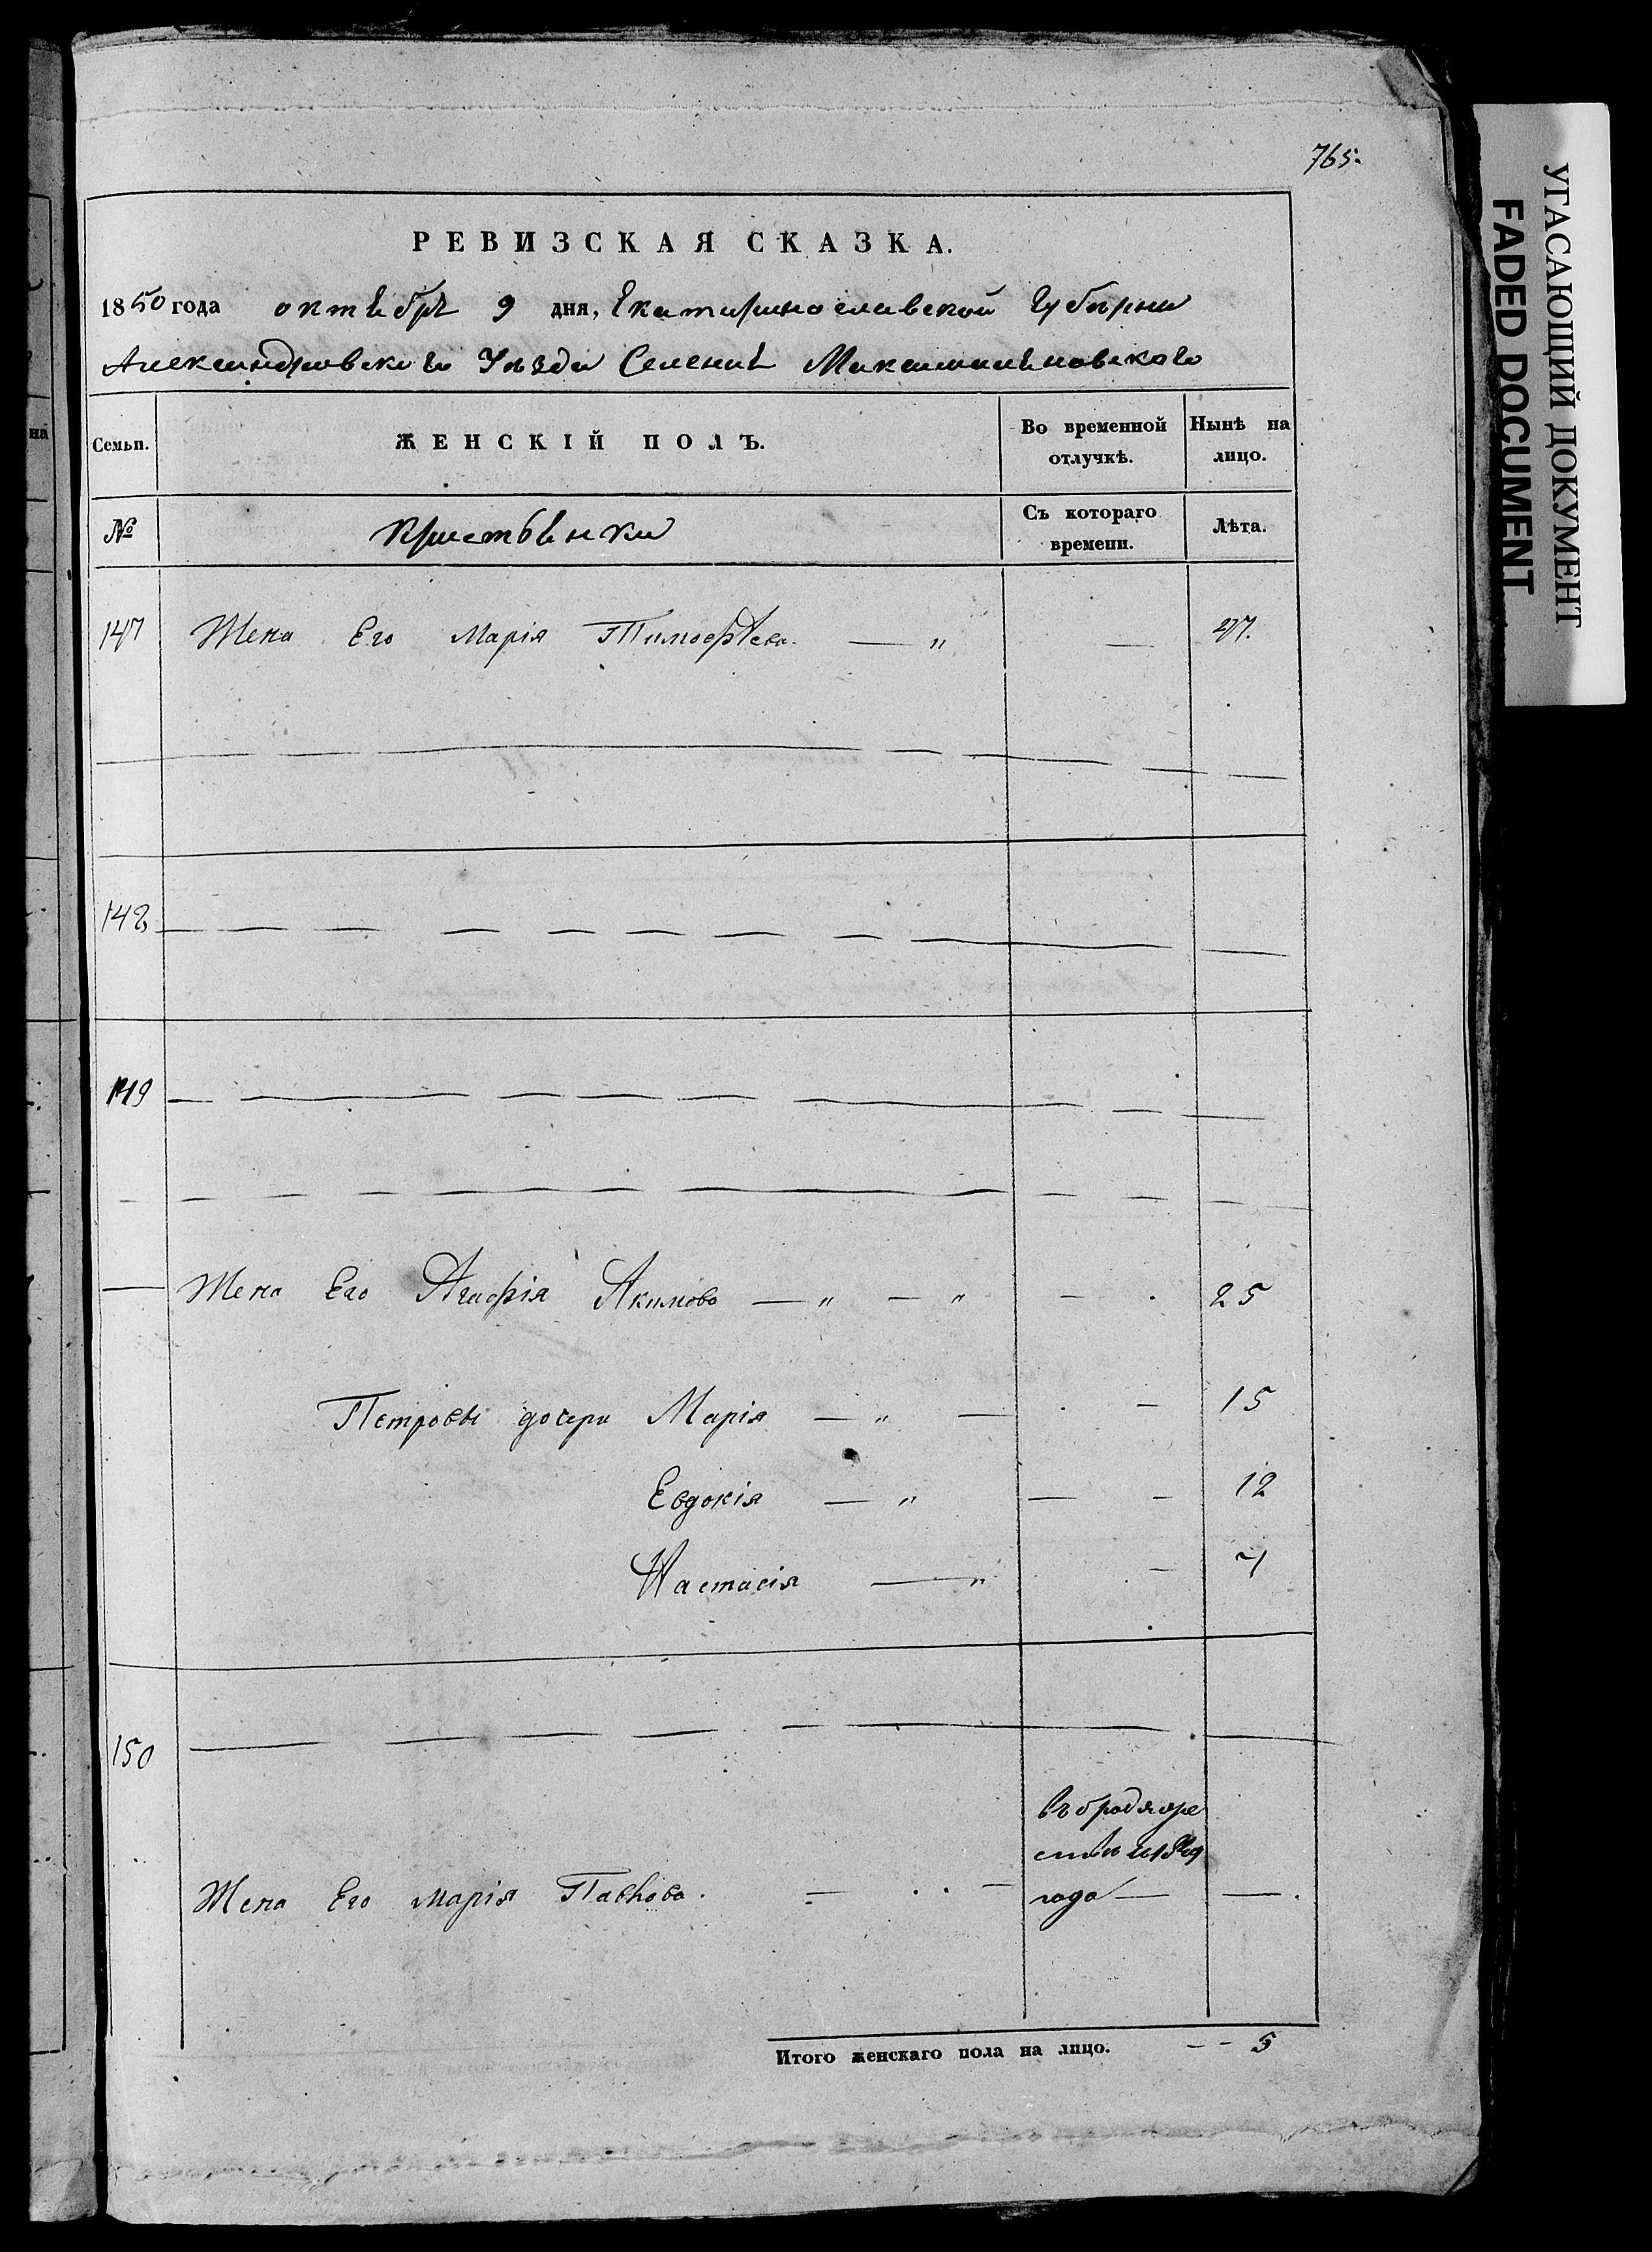 765.
РЕВИЗСКАЯ СКАЗКА.
1850 года октября 9 дня, Екатеринославской Губернии
Александровского Уѣзда Селенія Максимильяновского
Семьи. ЖЕНСКІЙ ПОЛЪ. Во временной отлучкѣ. Нынѣ на лицо.
№ Крестьянки Съ котораго времени. Лѣта.
147 Жена Его Марія Тимофѣева — " — 47.
148
149
Жена Его Агафія Акимова — " — " - 25
Петровы дочери Марія — " — - 15
Евдокія — " — - 12
Настасія — " -
150
въ бродяже
ствѣ
Жена Его Марія Павлова. — года — —.
Итого женскаго пола на лицо. - - 5
на
УГАСАЮЩИЙ ДОКУМЕНТ
FADED DOCUMENT